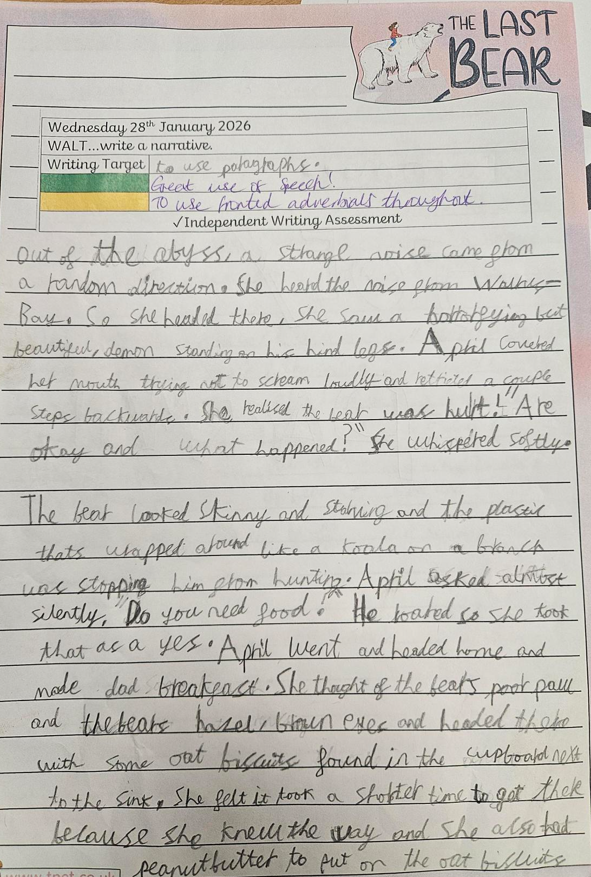 THE LAST
BEAR
Wednesday 28th January 2026
WALT...write a narrative.
Writing Target to use paragraphs.
Great use of speech!
To use fronted adverbials throughout.
✓Independent Writing Assessment
out of the abyss, a strange noise came from
a random direction. She heard the noise from Walrus
Bay. So she headed there, she saw a horrifying but
beautiful, demon standing on his hind legs. April covered
her mouth trying not to scream loudly and a couple
steps backwards. She realised the bear was hurt! "Are
okay and what happened?" She whispered softly.
The bear looked skinny and starving and the plastic
thats wrapped around like a koala on a branch
was stopping him from hunting. April asked almost
silently, "Do you need food?" He roared so she took
that as a yes. April went and headed home and
made dad breakfast. She thought of the bears poor paw
and the bears hazel, brown eyes and headed there
with some oat biscuits found in the cupboard next
to the sink. She felt it took a shorter time to get there
because she knew the way and she also had
peanutbutter to put on the oat biscuits